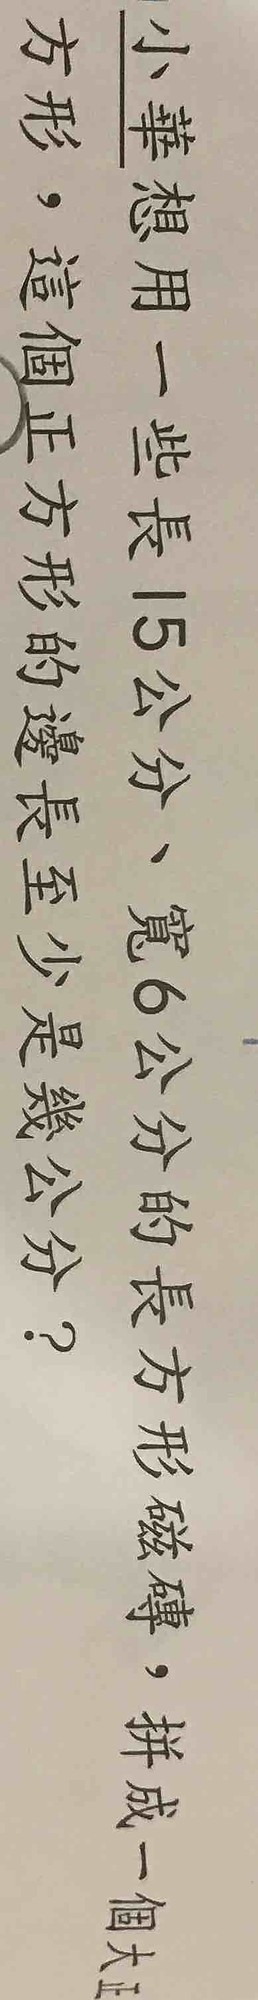 小華想用一些長15公分、寬6公分的長方形磁磚，拼成一個大正
方形，這個正方形的邊長至少是幾公分？